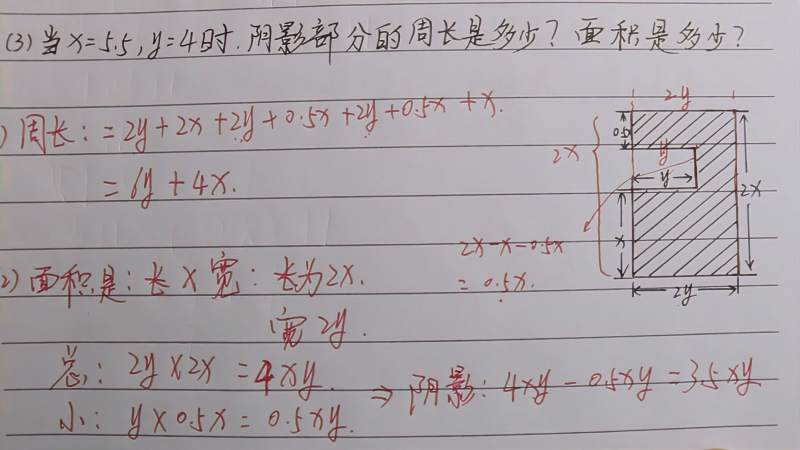 (3)当x=5.5,y=4时.阴影部分的周长是多少?面积是多少?
)周长:=2y+2x+2y+0.5x+2y+0.5x+x.
=6y+4x.
2)面积是:长×宽:长为2x.
宽2y.
总:2y×2x=4xy.
小:y×0.5x=0.5xy.
⇒阴影:4xy-0.5xy=3.5xy
2x-x-0.5x
=0.5x.
2y
0.5x
2x
y
y
2x
x
2y